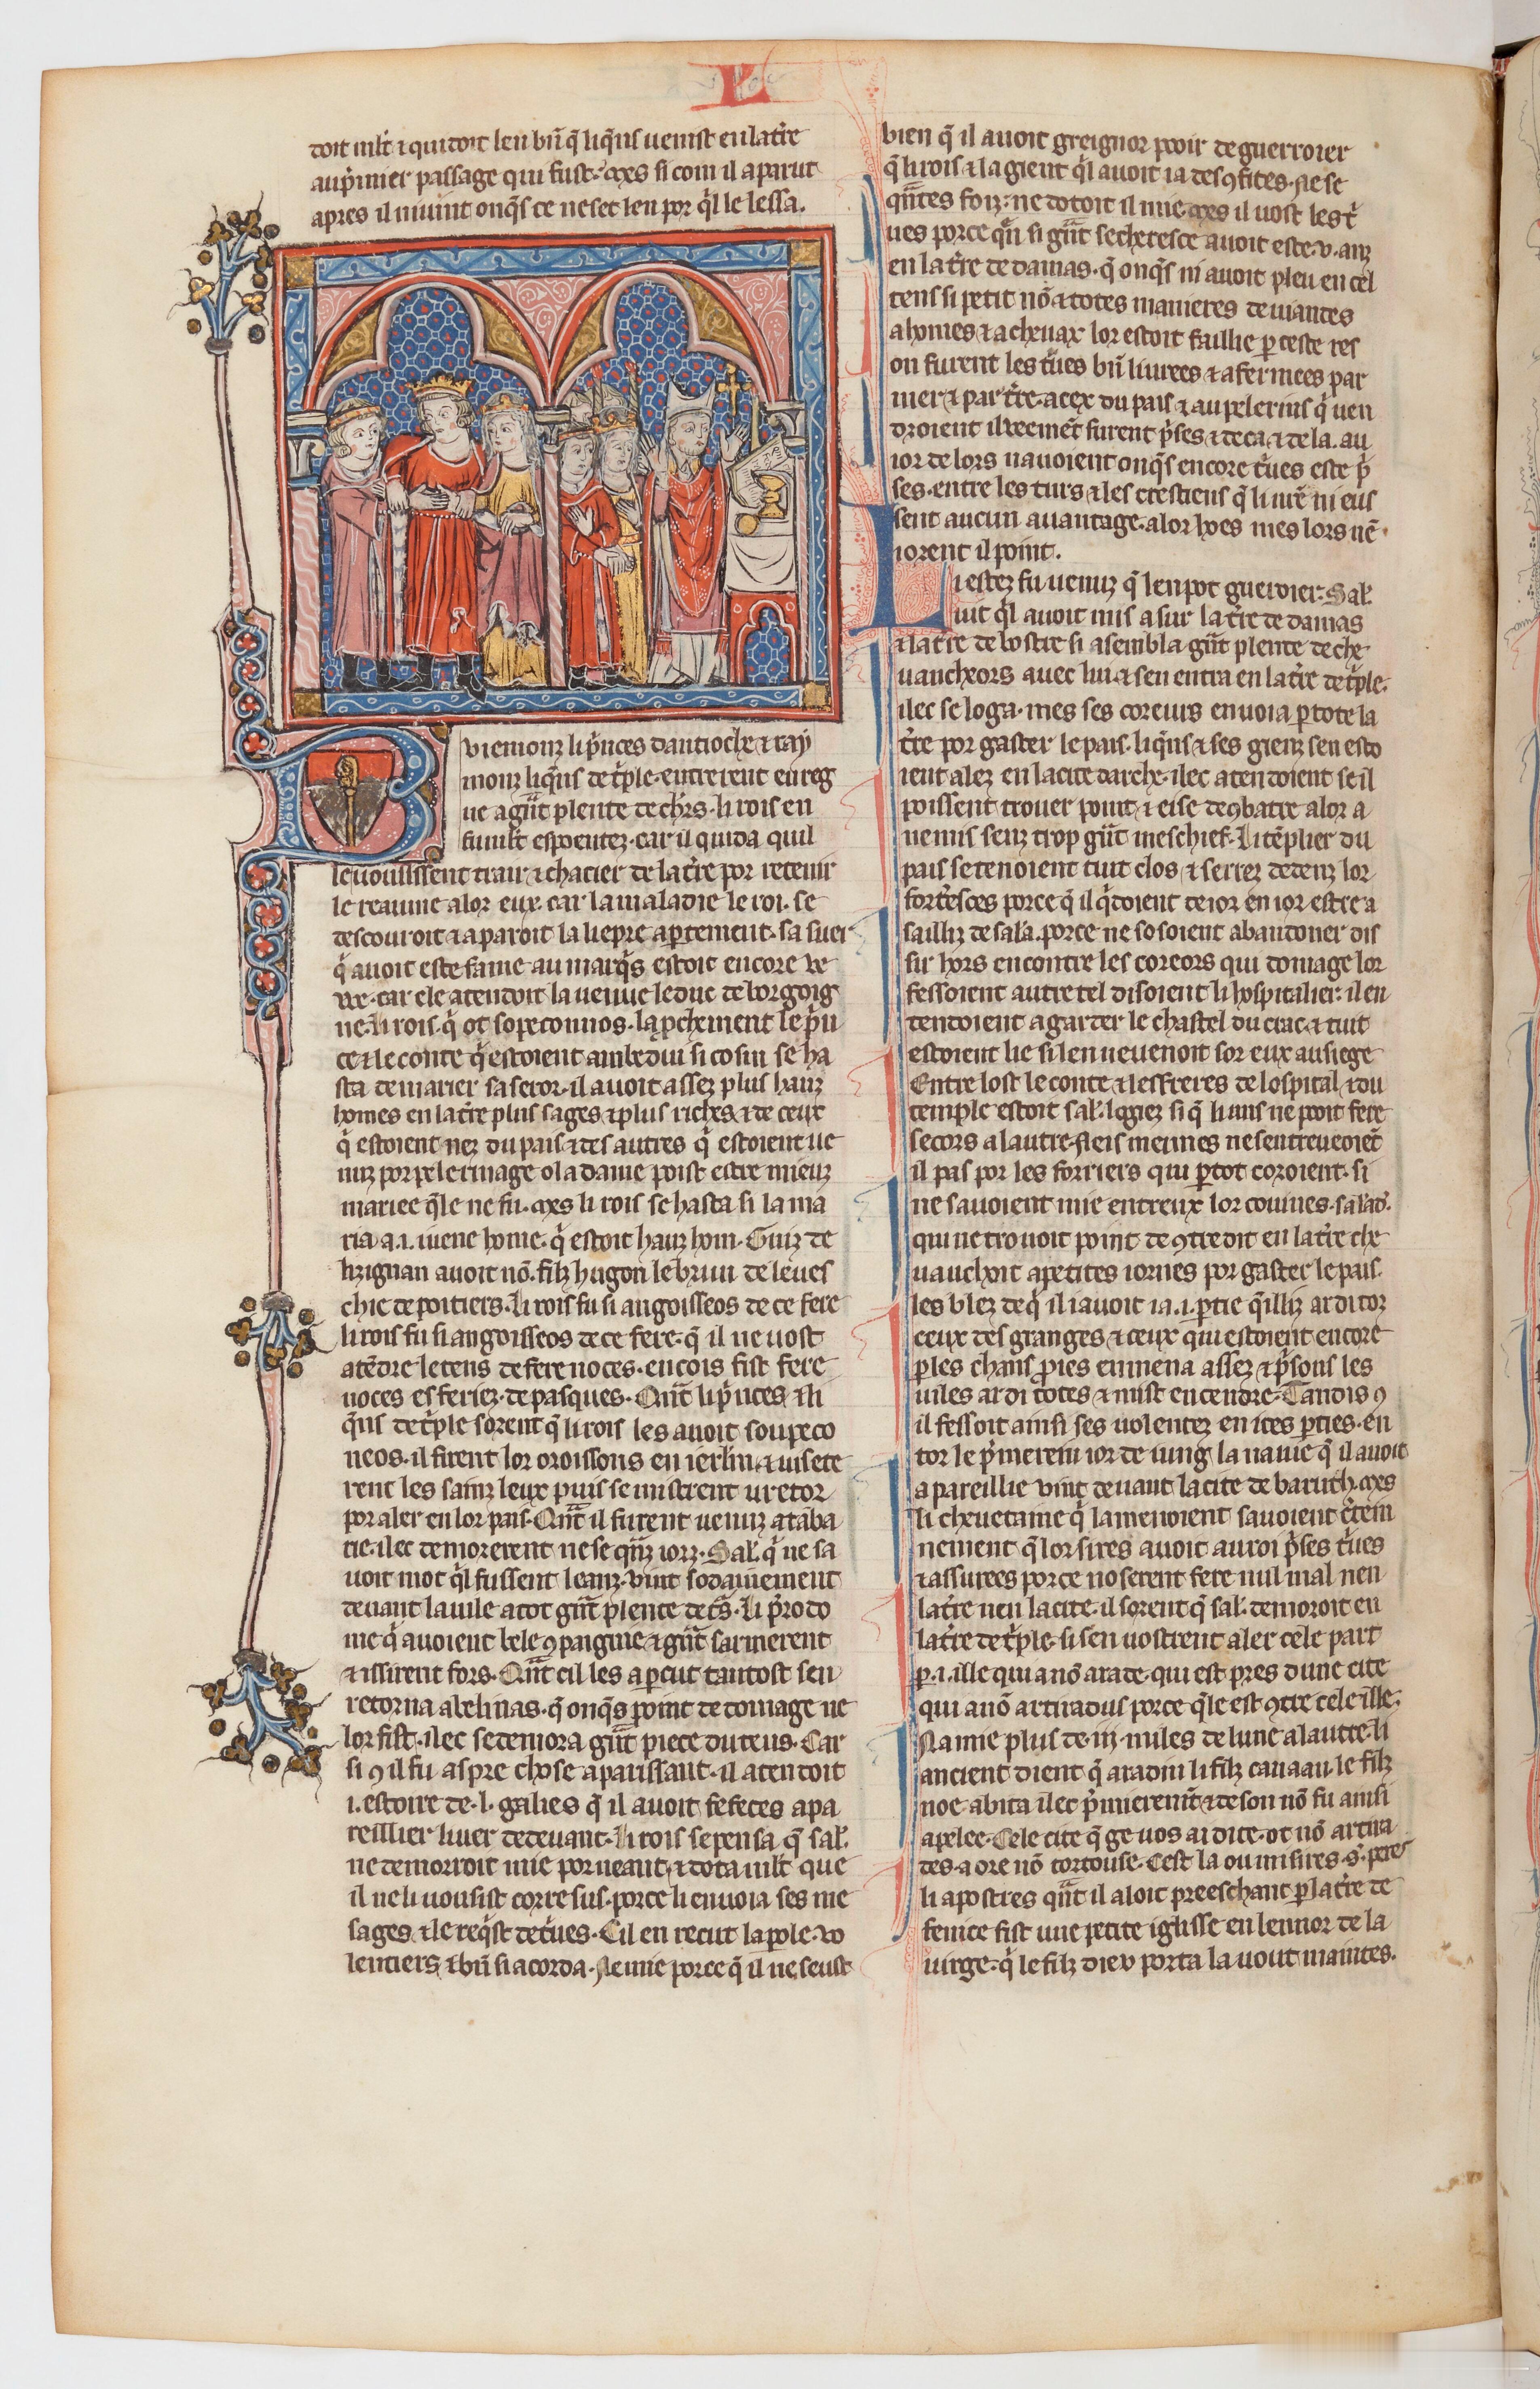 L
doit mlt̄ ⁊ quidoit len bn̄ q̄ liq̄ns uenist en lat̄re
aup̄mier passage qui fust. Mes si com il aparut
apres il niuint onq̄s ce neset len por q̄l le lessa.
Buiemonz li p̄nces dantioche ⁊ ray
monz liq̄ns det̄ple entrerent en reg
ne a gn̄t plente dechrs̄. li rois en
fu mlt̄ espoentez. car il quida quil
le uousissent trair ⁊ chacier de lat̄re por retenir
le reaume alor eux. car la maladie le roi. se
descouroit ⁊ aparoit la liepre ap̄tement. sa suer
q̄ auoit este fame au marq̄s estoit encore ve
ve. car ele atendoit la uenue le duc de borgoig
ne. Li rois. q̄ ot sopeconnos. lap̄chement le p̄n
ce ⁊ le conte q̄ estoient ambedui si cosin se ha
sta de marier sa seror. il auoit assez plus hauz
homes en lat̄re plus sages ⁊ plus riches ⁊ de ceux
q̄ estoient nez du pais ⁊ des autres q̄ estoient ue
nuz por pelerinage o la dame poist estre mieuz
mariee q̄le ne fu. Mes li rois se hasta si la ma
ria a .i. iuene home. q̄ estoit hauz hom. Guiz de
lizignan auoit nō. filz hugon le brun de leues
chie de poitiers. Li rois fu si angoisseos de ce fere
li rois fu si angoisseos de ce fere. q̄ il ne uost
atēdre le tens de fere noces. encois fist fere
noces es feriez. de pasques. Qn̄t li p̄nces ⁊ li
q̄ns det̄ple sorent q̄ li rois les auoit soupeco
neos. il firent lor oroissons en ierlm̄ ⁊ uisete
rent les sainz leux puis se mistrent v retor
por aler en lor pais. Qn̄t il furent uenuz a taba
rie. ilec demorerent ne se qn̄z iorz. Sal̄. q̄ ne sa
uoit mot q̄l fussent leanz. vint sodainement
deuant la uile a tot gn̄t plente de t̄s. Li p̄rodo
me q̄ auoient bele ꝯpaignie ⁊ gn̄t sarmerent
⁊ issirent fors. Qn̄t cil les ap̄cut tantost sen
retorna a belinas. q̄ onq̄s point de domage ne
lor fist. ilec se demora gn̄t piece du tens. Car
si ꝯ il fu aspre chose aparissant. il atendoit
.i. estoire de .l. galies q̄ il auoit fefetes apa
reillier liuer dedeuant. Li rois se pensa q̄ sal̄.
ne demorroit mie por neant. ⁊ dota mlt̄ que
il ne li uousist corre sus. por ce li enuoia ses me
sages ⁊ le req̄st det̄ues. Cil en recut la pole. vo
lentiers ⁊ bn̄ si acorda. Ne mie por ce q̄ il ne seust
bien q̄ il auoit greignor pooir de guerroier
q̄ li rois ⁊ la gient q̄l auoit ia desꝯfites. Ne se
qn̄tes foiz. ne dotoit il mie. Mes il uost les t̄
ues por ce qn̄ si gn̄t secheresce auoit este .v. anz
en lat̄re de damas. q̄ onq̄s ni auoit pleu en cel
tens si petit nō ⁊ totes manieres de uiandes
a homes ⁊ a cheuax lor estoit faillie p̄ ceste res
on furent les t̄ues bn̄ liurees ⁊ afermees par
mer ⁊ par t̄re. a cex du pais ⁊ au pelerins q̄ uen
droient il veemēt furent p̄ses ⁊ deca ⁊ dela. au
ior de lors nauoient onq̄s encore t̄ues este p̄
ses. entre les turs ⁊ les crestiens q̄ li nr̄e ni eus
sent aucun auantage. alor hoes mes lors nē
iorent il point.
Li estez fu uenuz q̄ len pot guerroier. Sal̄.
uit q̄l auoit mis a sur lat̄re de damas
⁊ lat̄re de bostre si asembla gn̄t plente de che
uaucheors auec lui ⁊ sen entra en lat̄re det̄ple.
ilec se loga. mes ses coreurs enuoia p̄ tote la
t̄re por gaster le pais. liq̄ns ⁊ ses gienz sen esto
ient alez en la cite darche. ilec atendoient se il
poissent trouer point ⁊ eise deꝯbatre alor a
nemis senz trop gn̄t meschief. Li tēplier du
pais se tenoient tuit clos ⁊ serrez dedenz lor
fort̄esces por ce q̄ il q̄doient de ior en ior estre a
sailliz de sala. por ce ne sosoient abandoner dis
sir hors encontre les coreors qui domage lor
fessoient autretel disoient li hospitalier. il en
tendoient a garder le chastel du crac ⁊ tuit
estoient lie si len ne uenoit sor eux au siege
Entre lost le conte ⁊ les freres de lospital ⁊ du
temple estoit sal̄. logiez si q̄ li uns ne pooit fere
secors a lautre. Neis meimes ne sentreueoiēt
il pas por les forriers qui p̄tot coroient. si
ne sauoient mie entreux lor couines. salad̄.
qui ne trouoit point de ꝯtredit en lat̄re che
uauchoit a petites iornees por gaster le pais.
les blez deq̄ il i auoit ia .i. p̄tie q̄illiz ardi toz
ceux des granges ⁊ ceux qui estoient encore
p̄ les chans p̄oies enmena assez ⁊ p̄sons les
uiles ardi totes ⁊ mist en cendre. Tandis ꝯ
il fessoit ainsi ses uolentez en ices p̄ties. en
tor le p̄merein ior de iung la nauie q̄ il auoit
apareillie vint deuant la cite de baruth. Mes
li cheuetaine q̄ lamenoient sauoient c̄tein
nement q̄ lor sires auoit au roi p̄ses t̄ues
⁊ assurees por ce noserent fere nul mal nen
lat̄re nen la cite. il sorent q̄ sal̄. demoroit en
lat̄re det̄ple. si sen uostrent aler cele part
p̄ .i. ille qui a nō arade. qui est pres dune cite
qui a nō artnadus por ce q̄le est ꝯtre cele ille.
Na mie plus de .iij. miles de lune a lautre. li
ancient dient q̄ aradiu li filz canaan. le filz
noe. abita ilec p̄mierenīt ⁊ de son nō fu ainsi
apelee. Cele cite q̄ ge uos ai dite. ot nō artna
des. a ore nō tortouse. Cest la ou misires .s. peres
li apostres qn̄t il aloit preeschant p̄ lat̄re de
fenice fist une petite iglisse en lennor de la
uirge. q̄ le filz diev porta la uont maintes.